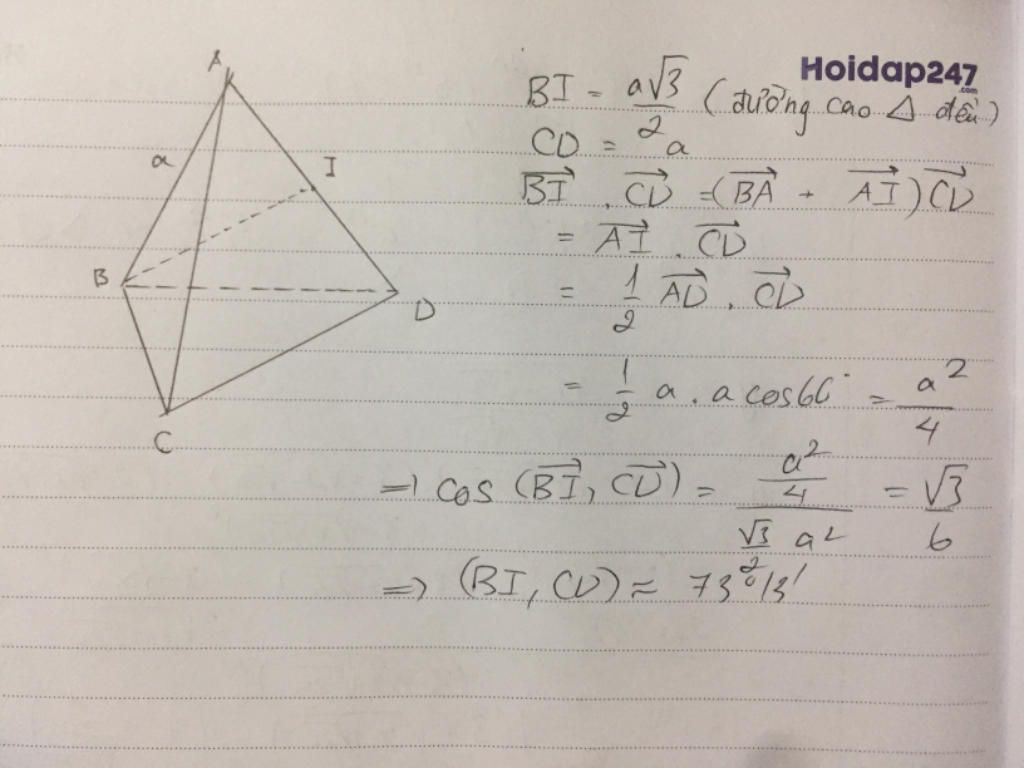 A
Hoidap247
.com
BI = a√3/2 (đường cao Δ đều)
a
I
CD = a
B
BI→ . CD→ = (BA→ + AI→) CD→
= AI→ . CD→
D
= 1/2 AD→ . CD→
= 1/2 a . a cos60° = a²/4
C
=> cos (BI→, CD→) = (a²/4)/(√3/2 a²) = √3/6
=> (BI, CD) ≈ 73°13'